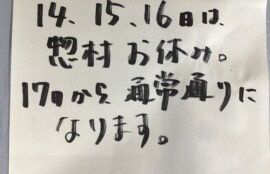 14、15、16日は、
惣村お休み。
17日から通常通りに
なります。